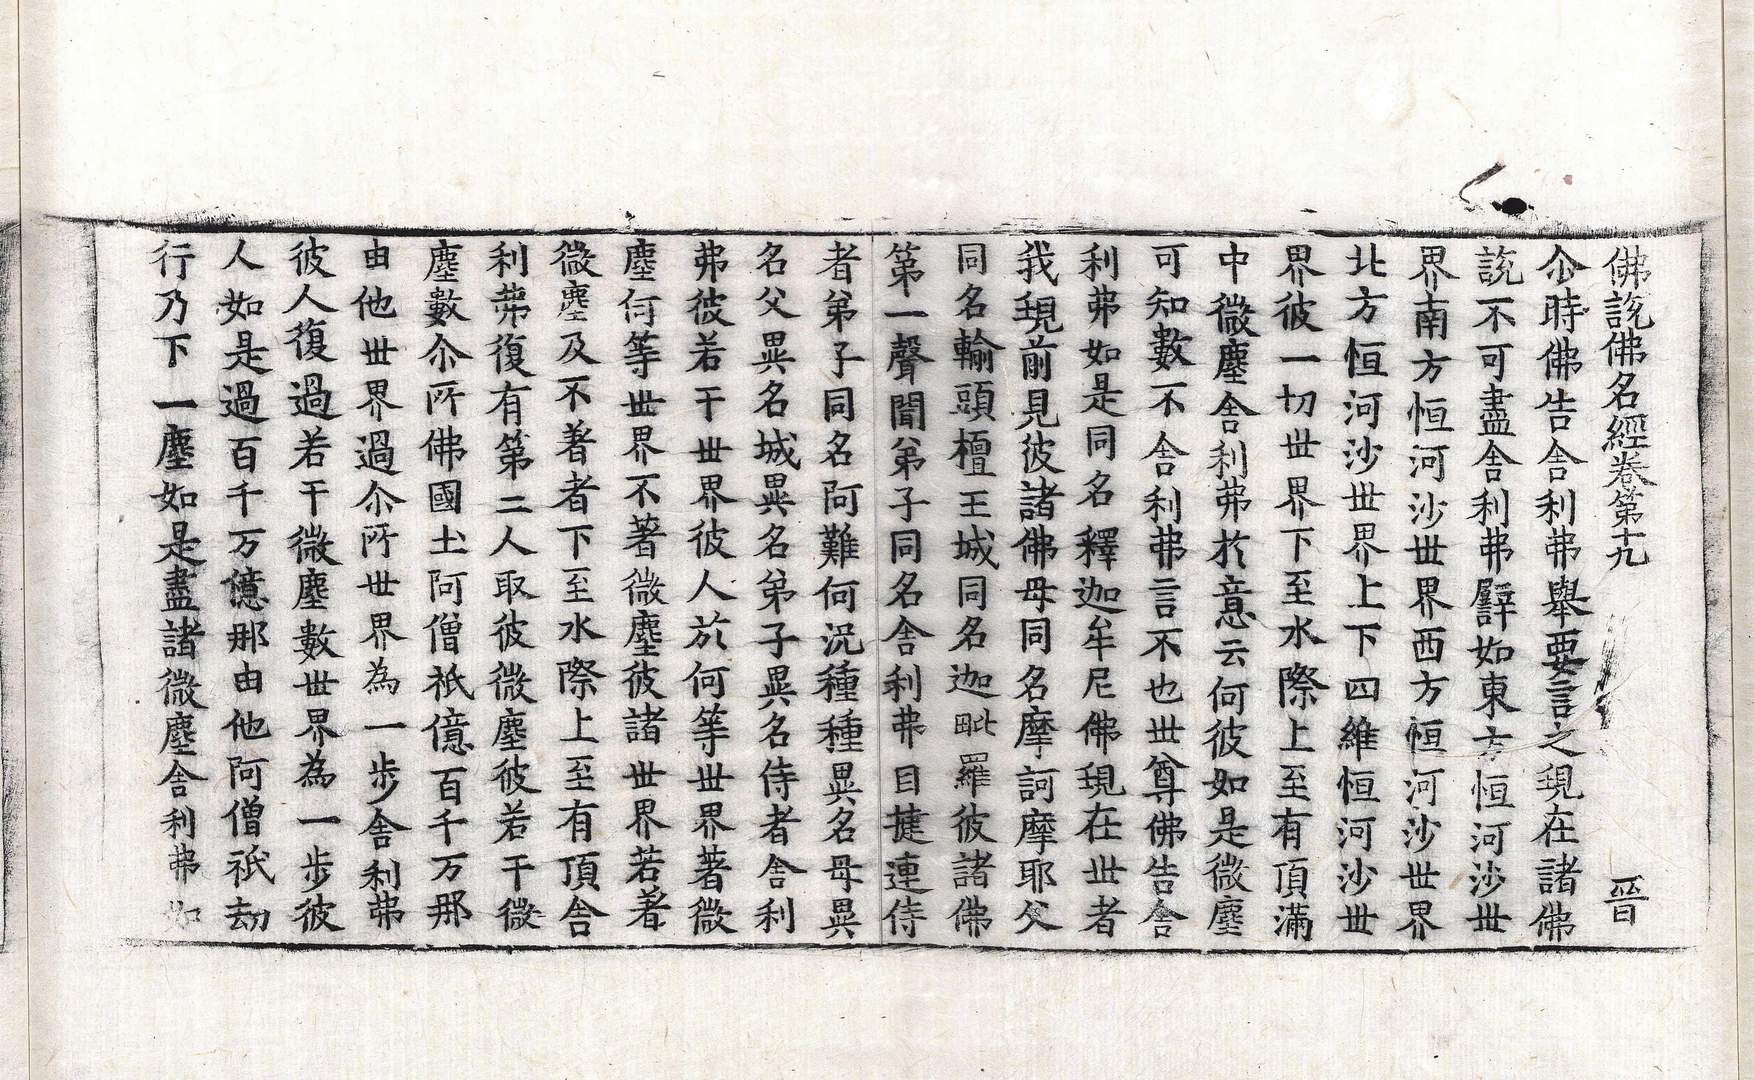 佛說佛名經卷第十九　晉
尒時佛告舍利弗舉要言之現在諸佛
說不可盡舍利弗譬如東方恒河沙世
界南方恒河沙世界西方恒河沙世界
北方恒河沙世界上下四維恒河沙世
界彼一切世界下至水際上至有頂滿
中微塵舍利弗於意云何彼如是微塵
可知數不舍利弗言不也世尊佛告舍
利弗如是同名釋迦牟尼佛現在世者
我現前見彼諸佛母同名摩訶摩耶父
同名輸頭檀王城同名迦毗羅彼諸佛
第一聲聞弟子同名舍利弗目揵連侍
者弟子同名阿難何況種種異名母異
名父異名城異名弟子異名侍者舍利
弗彼若干世界彼人於何等世界著微
塵何等世界不著微塵彼諸世界若著
微塵及不著者下至水際上至有頂舍
利弗復有第二人取彼微塵彼若干微
塵數尒所佛國土阿僧祇億百千万那
由他世界過尒所世界為一步舍利弗
彼人復過若干微塵數世界為一步彼
人如是過百千万億那由他阿僧祇劫
行乃下一塵如是盡諸微塵舍利弗如